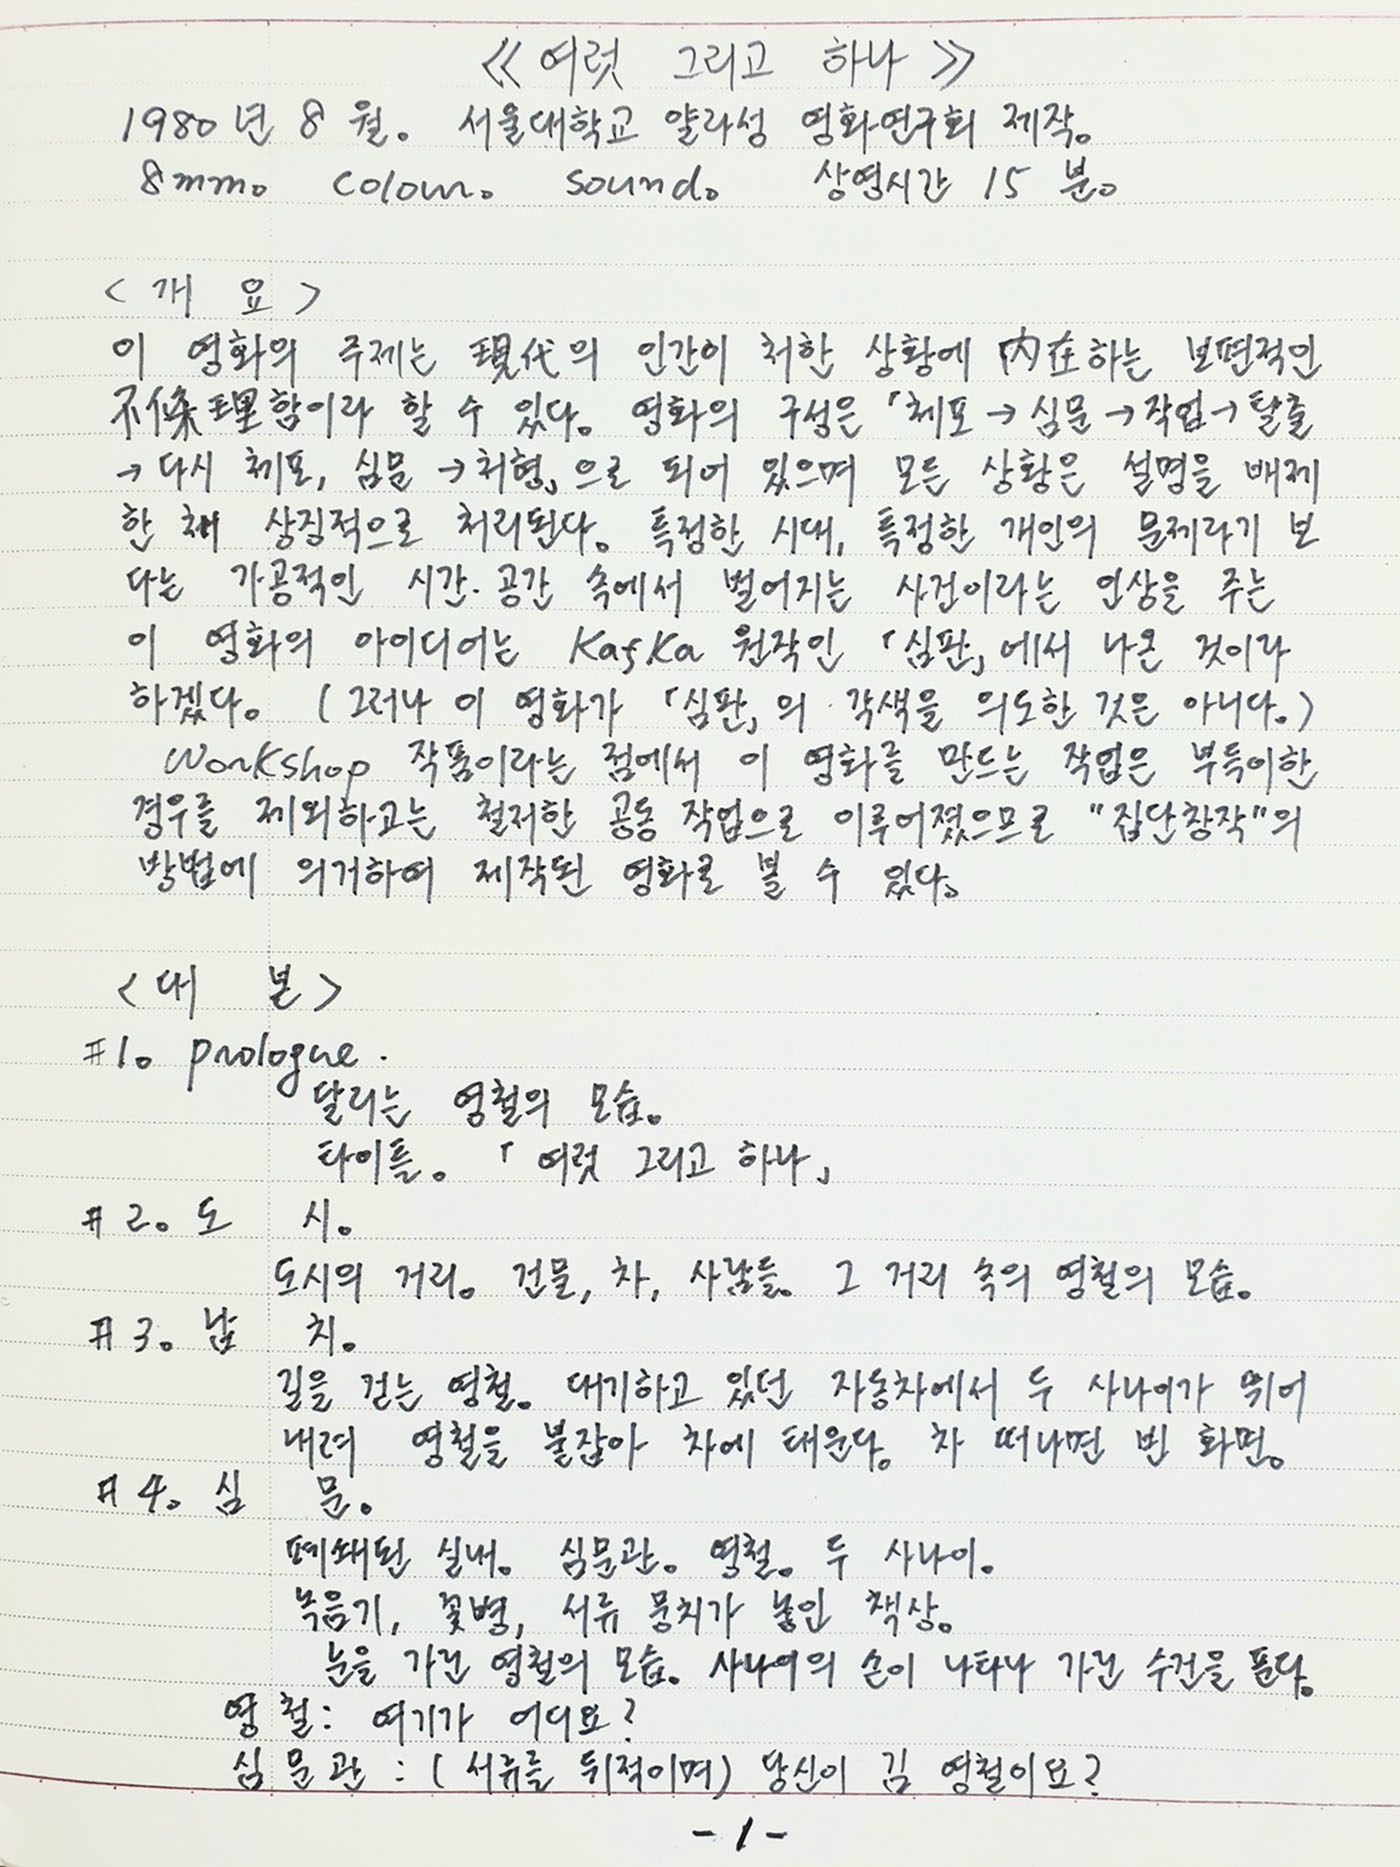 《여럿 그리고 하나》
1980년 8월. 서울대학교 얄라성 영화연구회 제작.
8mm. colour. sound. 상영시간 15분.
<개 요>
이 영화의 주제는 現代의 인간이 처한 상황에 內在하는 보편적인
不條理함이라 할 수 있다. 영화의 구성은 「체포→심문→작업→탈출
→다시 체포, 심문→처형」으로 되어 있으며 모든 상황은 설명을 배제
한 채 상징적으로 처리된다. 특정한 시대, 특정한 개인의 문제라기 보
다는 가공적인 시간·공간 속에서 벌어지는 사건이라는 인상을 주는
이 영화의 아이디어는 Kafka 원작인 「심판」에서 나온 것이라
하겠다. (그러나 이 영화가 「심판」의 각색을 의도한 것은 아니다.)
Workshop 작품이라는 점에서 이 영화를 만드는 작업은 부득이한
경우를 제외하고는 철저한 공동 작업으로 이루어졌으므로 "집단창작"의
방법에 의거하여 제작된 영화로 볼 수 있다.
<대 본>
#1. prologue.
달리는 영철의 모습.
타이틀. 「여럿 그리고 하나」
#2. 도 시.
도시의 거리. 건물, 차, 사람들. 그 거리 속의 영철의 모습.
#3. 납 치.
길을 걷는 영철. 대기하고 있던 자동차에서 두 사나이가 뛰어
내려 영철을 붙잡아 차에 태운다. 차 떠나면 빈 화면.
#4. 심 문.
폐쇄된 실내. 심문관. 영철. 두 사나이.
녹음기, 꽃병, 서류 뭉치가 놓인 책상.
눈을 가린 영철의 모습. 사나이의 손이 나타나 가린 수건을 푼다.
영철: 여기가 어디요?
심문관: (서류를 뒤적이며) 당신이 김 영철이요?
-1-